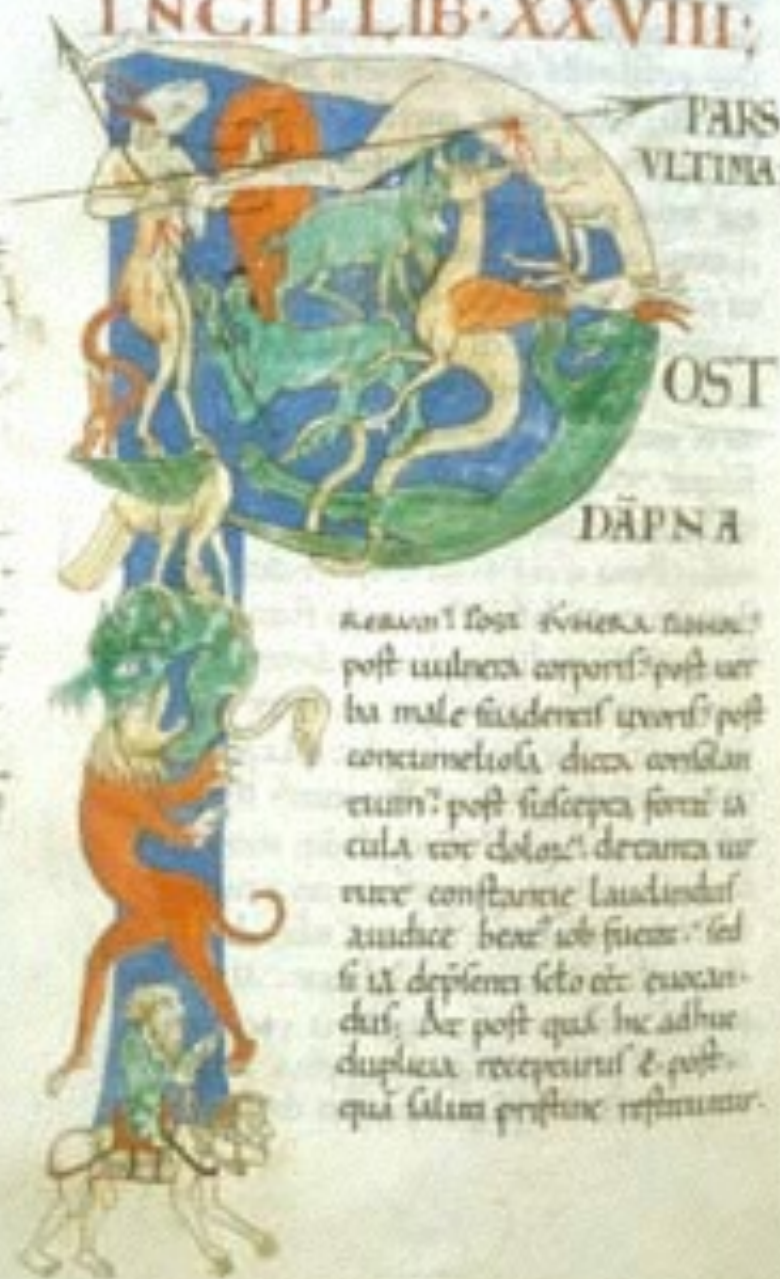 INCIP LIB · XXVIII;
PARS
VLTIMA
OST
DĀPNA
RERUM? POST FUNERA
post uulnera corporis? post uer
ba male suadentis uxoris? post
contumeliosa dicta consolan
tium? post suscepta forti ia
cula tot dolor. de tanta uir
tute constantie laudandus
a iudice beat iob fuerat. sed
si iā depsenti sclo eēt euocan
dus; At post quā hic adhuc
duplicia recepturus ē. post
quā saluti pristine restituitur.